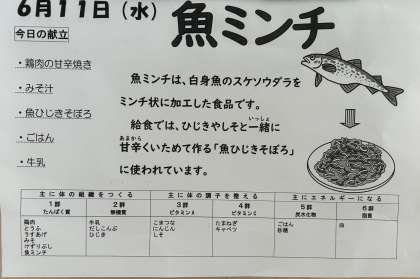 6月11日（水）
魚ミンチ
今日の献立
・鶏肉の甘辛焼き
・みそ汁
・魚ひじきそぼろ
・ごはん
・牛乳
魚ミンチは、白身魚のスケソウダラを
ミンチ状に加工した食品です。
給食では、ひじきやしそと一緒に
いっしょ
甘辛くいためて作る「魚ひじきそぼろ」
あまから
に使われています。
主に体の組織をつくる
主に体の調子を整える
主にエネルギーになる
1群
たんぱく質
2群
無機質
3群
ビタミンA
4群
ビタミンC
5群
炭水化物
6群
脂質
鶏肉
とうふ
うすあげ
みそ
けずりぶし
魚ミンチ
牛乳
だしこんぶ
ひじき
こまつな
にんじん
しそ
たまねぎ
キャベツ
ごはん
砂糖
油